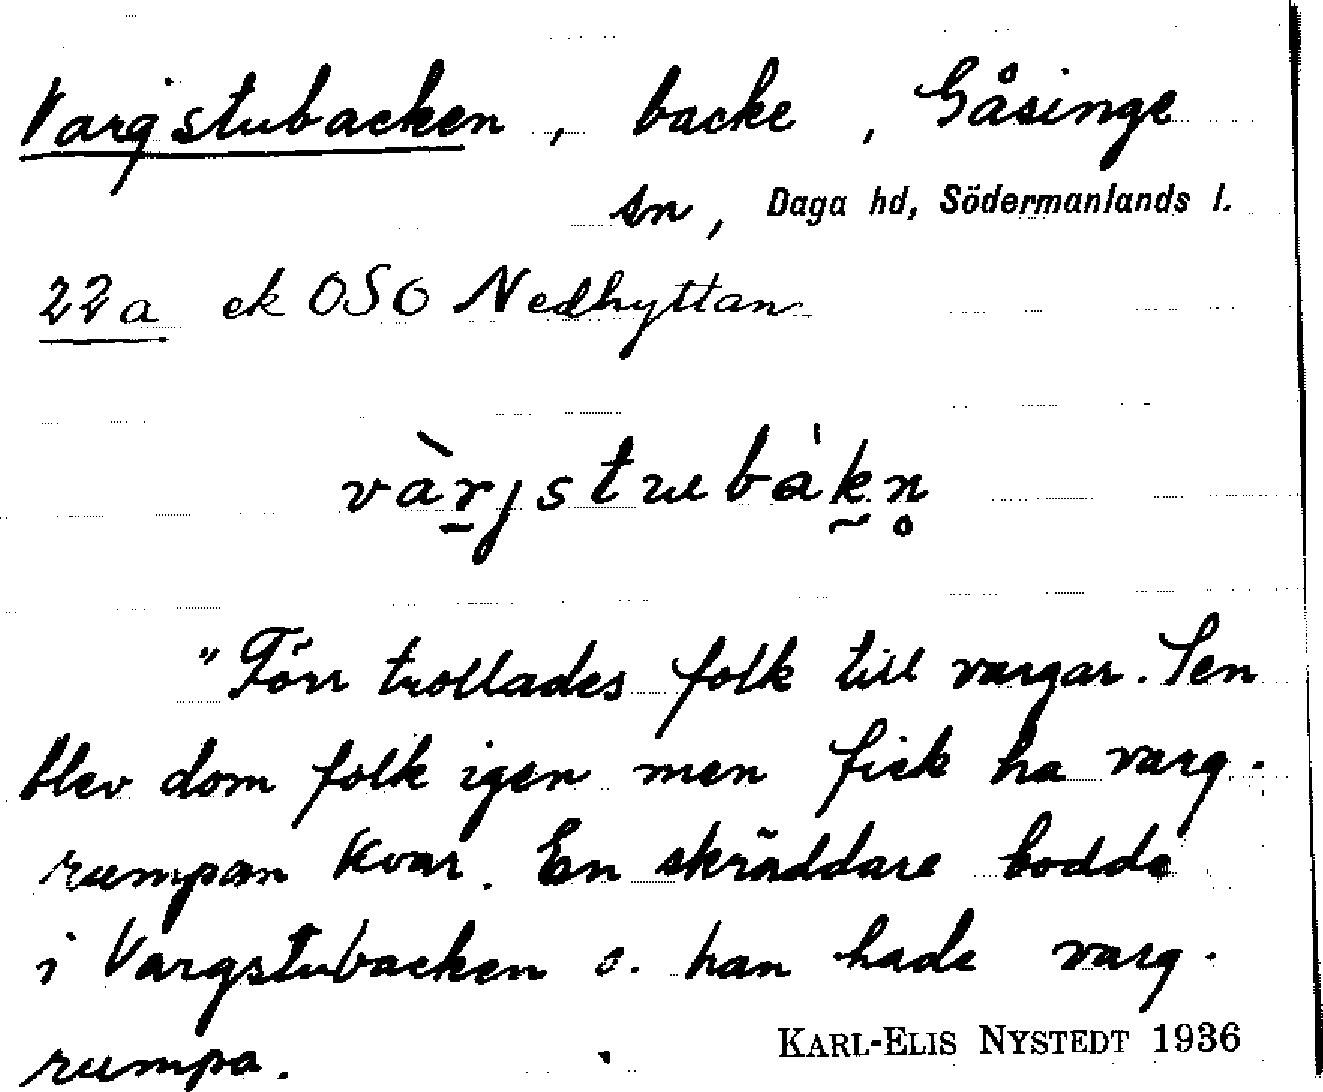 Vargstubacken, backe, Gåsinge
sn, Daga hd, Södermanlands l.
22a ek OSO Nedhyttan
vàrjstubàkn̥
"Förr trollades folk till vargar. Sen
blev dom folk igen men fick ha varg-
rumpan kvar. En skräddare bodde
i Vargstubacken o. han hade varg-
rumpa.
KARL-ELIS NYSTEDT 1936